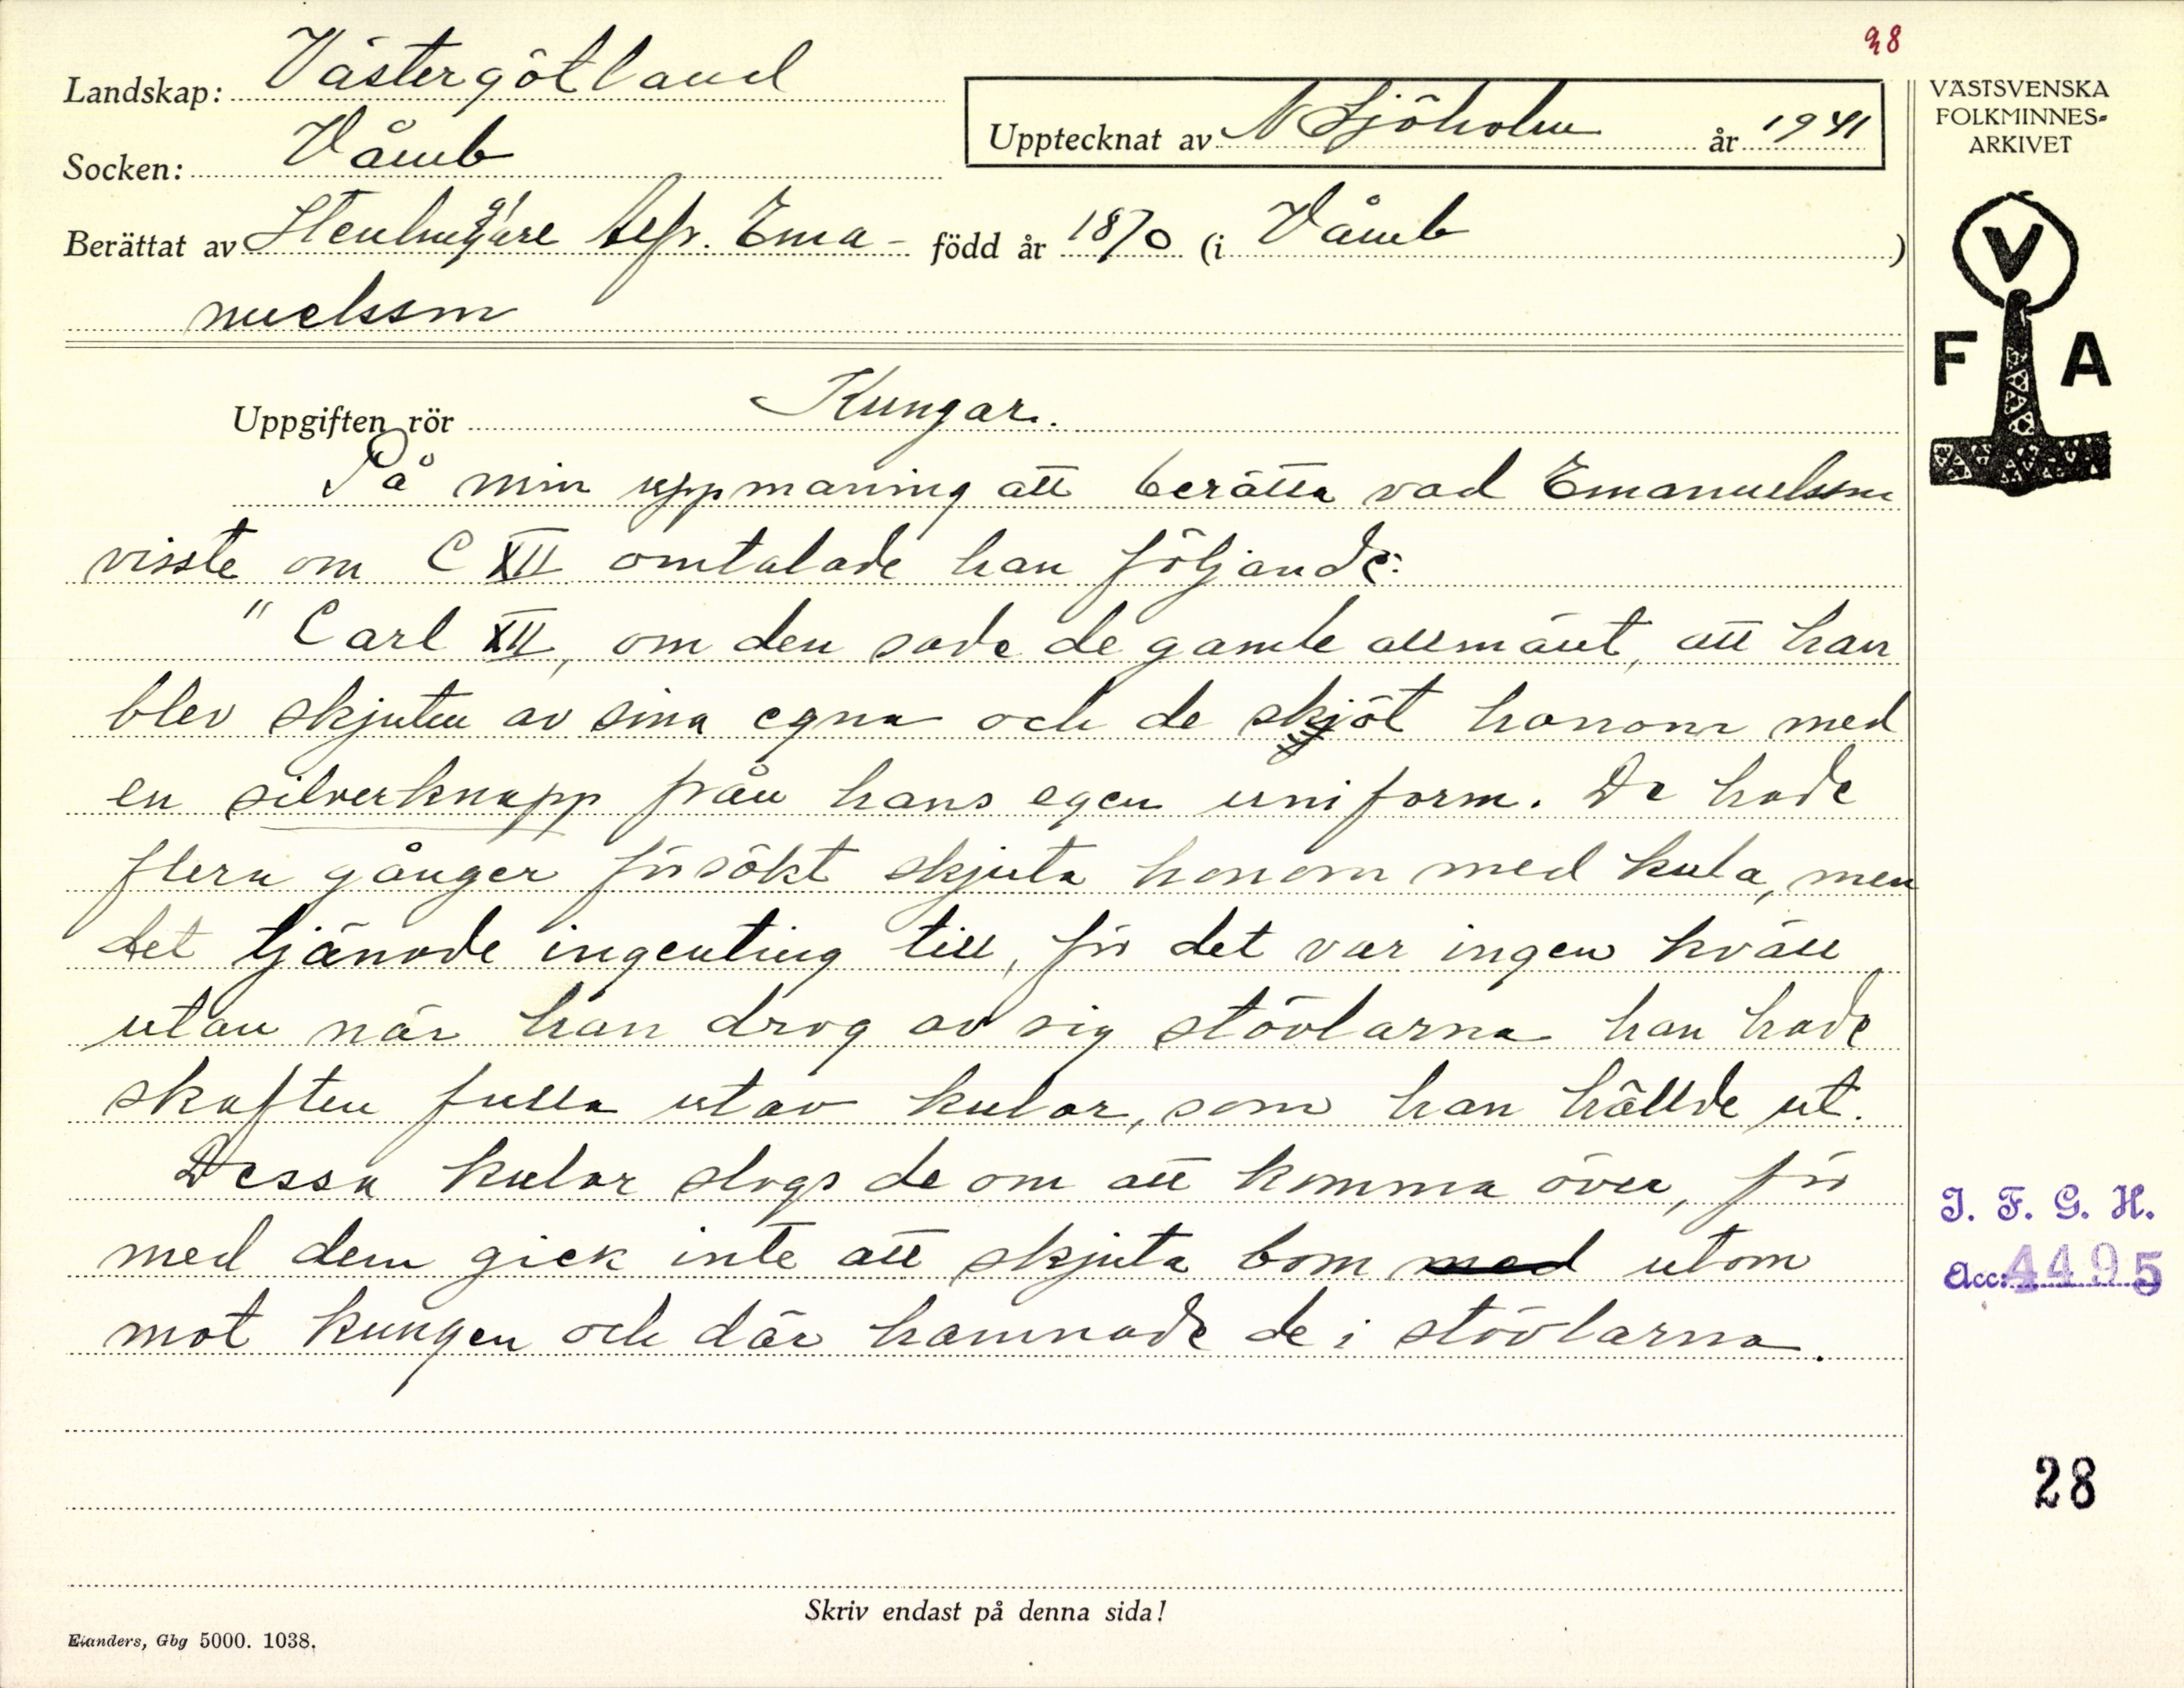 28
Landskap: Västergötland
Socken: Våmb
Upptecknat av N Sjöholm år 1941
Berättat av Stenhuggare Alfr. Ema- född år 1870 (i Våmb )
nuelsson
VÄSTSVENSKA
FOLKMINNES-
ARKIVET
V
F A
Uppgiften rör Kungar.
På min uppmaning att berätta vad Emanuelsson
visste om C XII omtalade han följande:
" Carl XII, om den sade de gamle allmänt, att han
blev skjuten av sina egna och de skjöt honom med
en silverknapp från hans egen uniform. De hade
flera gånger försökt skjuta honom med kula, men
det tjänade ingenting till, för det var ingen kväll
utan när han drog av sig stövlarna han hade
skaften fulla utav kulor, som han hällde ut.
Dessa kulor slogs de om att komma över, för
med dem gick inte att skjuta bom med utom
mot kungen och där hamnade de i stövlarna.
I. F. G. H.
Acc: 4495
28
Skriv endast på denna sida!
Elanders, Gbg 5000. 1038.